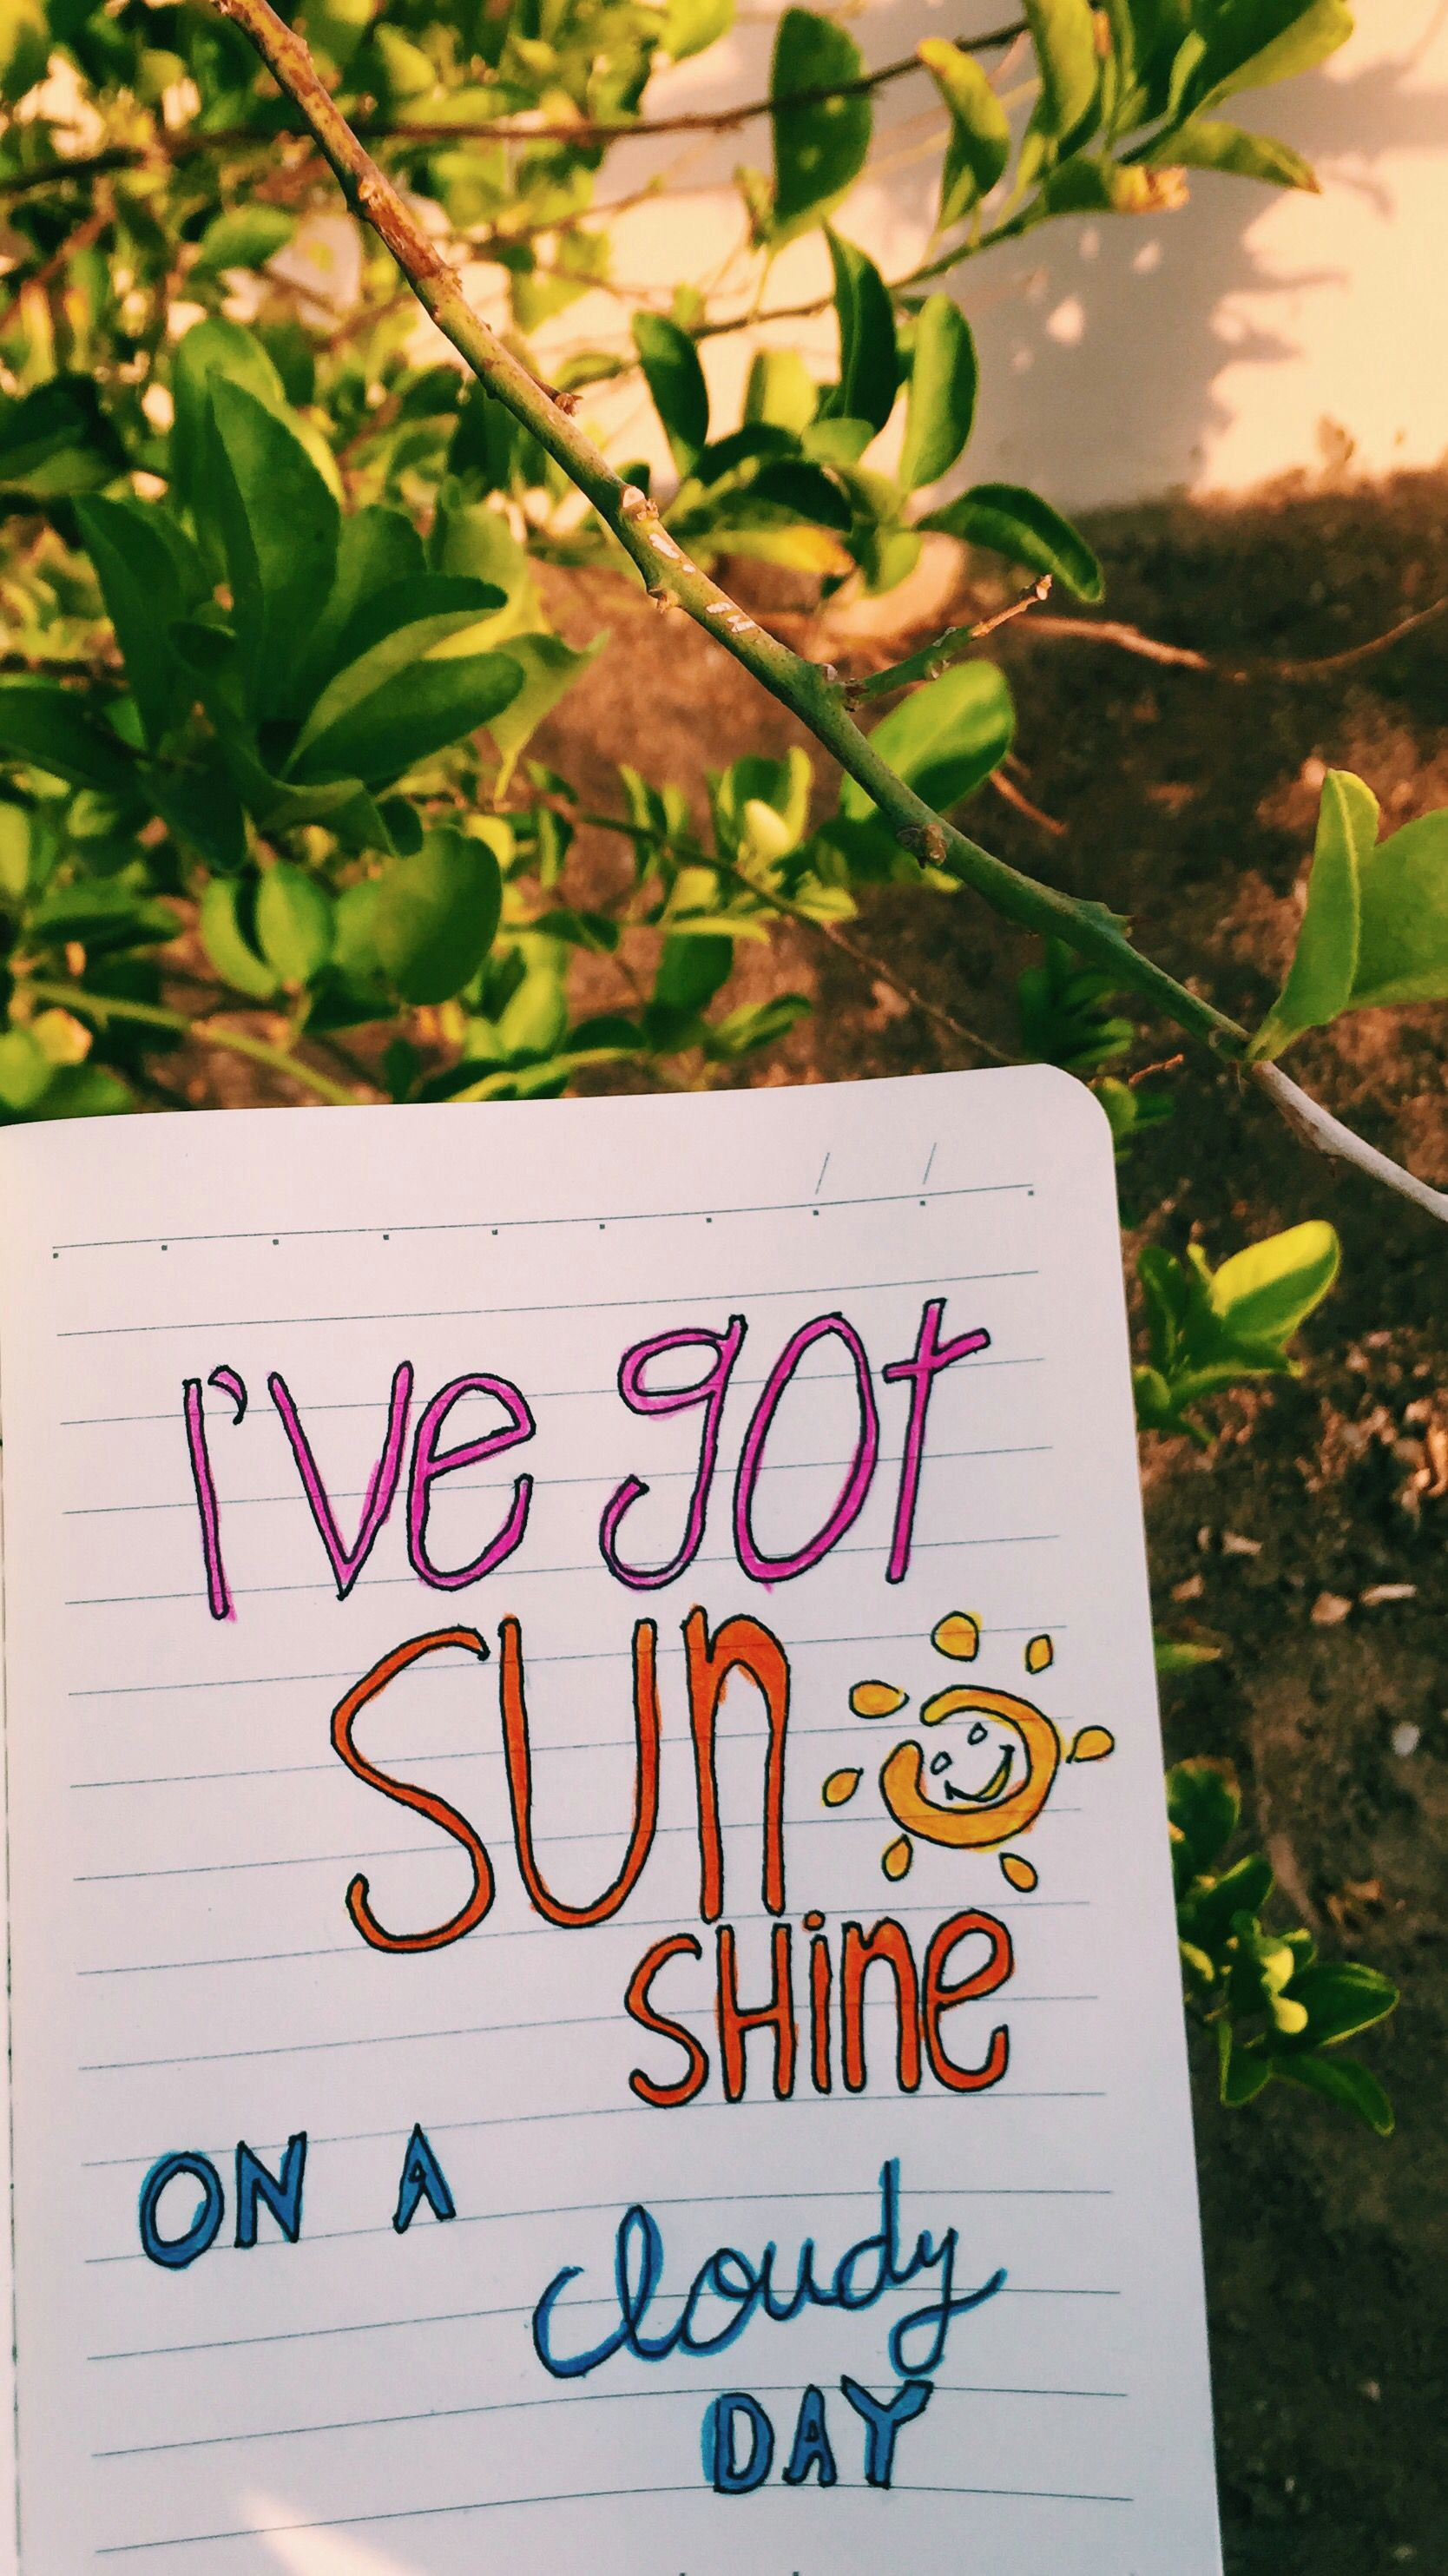 I've got
sun
sHine
ON A
cloudy
DAY